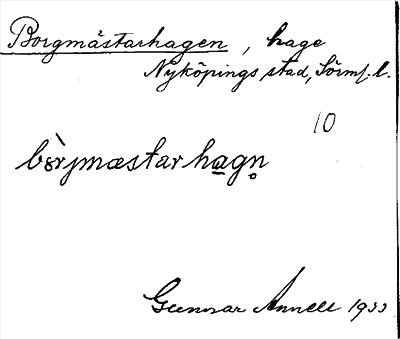 Borgmästarhagen, hage
Nyköpings stad, Sörml. l.
10
bòrjmæstarhagn̥
Gunnar Annell 1933